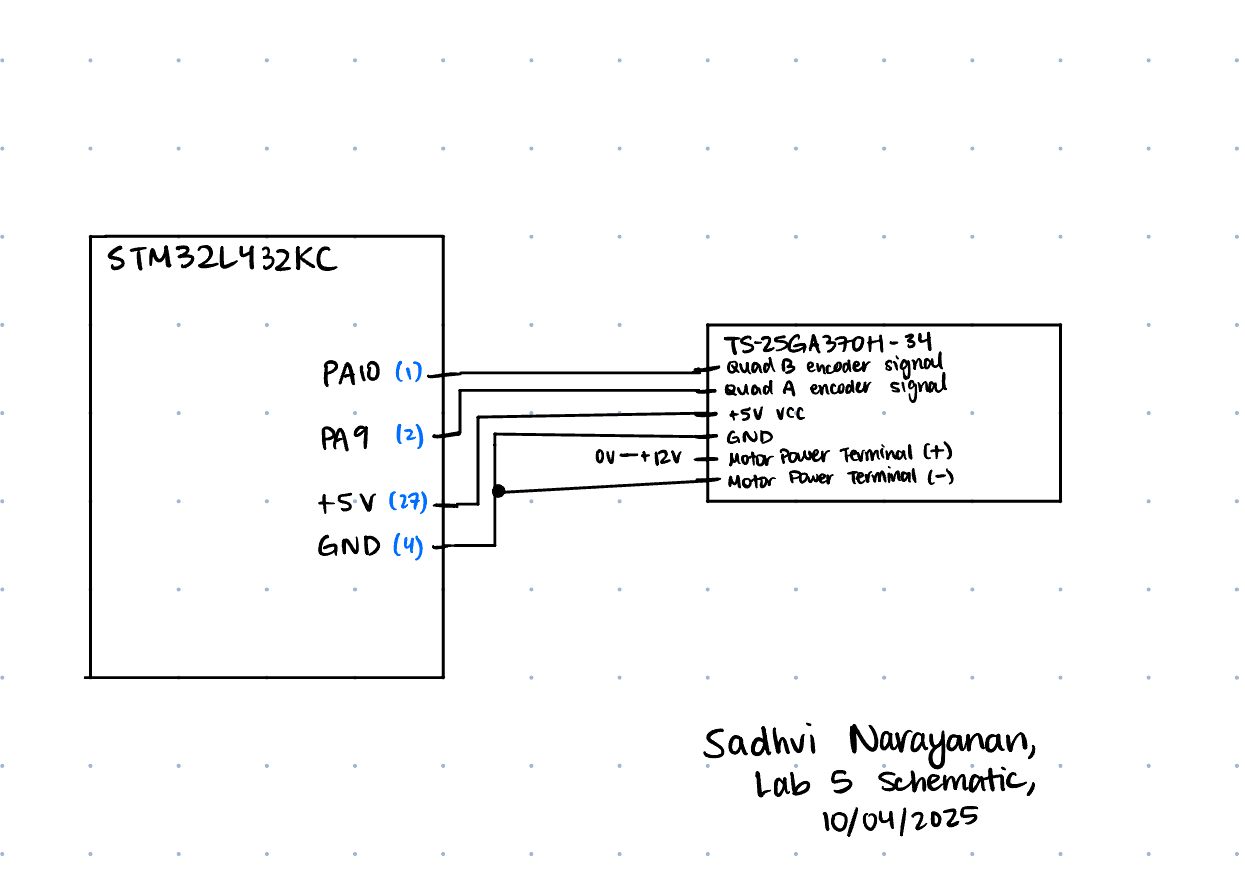 STM32L432KC
PA10 (1)
PA9 (2)
+5V (27)
GND (4)
TS-25GA370H-34
Quad B encoder signal
Quad A encoder signal
+5V VCC
GND
0V-+12V
Motor Power Terminal (+)
Motor Power Terminal (-)
Sadhvi Narayanan,
Lab 5 Schematic,
10/04/2025